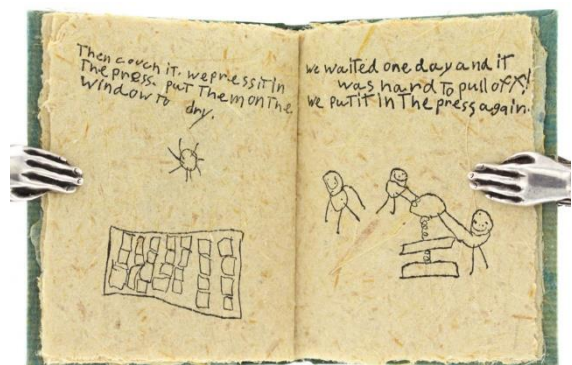 Then couch it. we press it in
The press. put Them on the
window to dry.
we waited one day and it
was hard to pull off!
we put it in The press again.